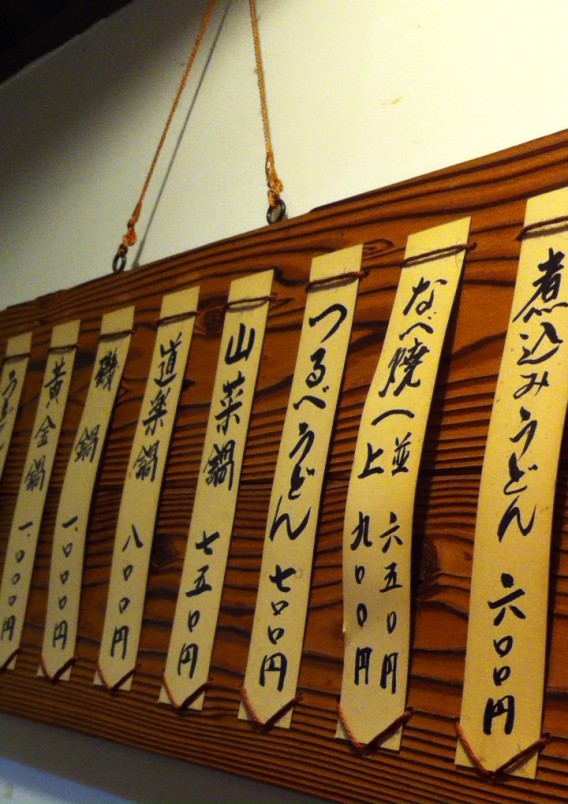 煮込みうどん 六〇〇円
なべ焼(並 六五〇円
上 九〇〇円
つるべうどん 七〇〇円
山菜鍋 七五〇円
道楽鍋 八〇〇円
磯鍋 一、〇〇〇円
黄金鍋 一、〇〇〇円
うどん 円